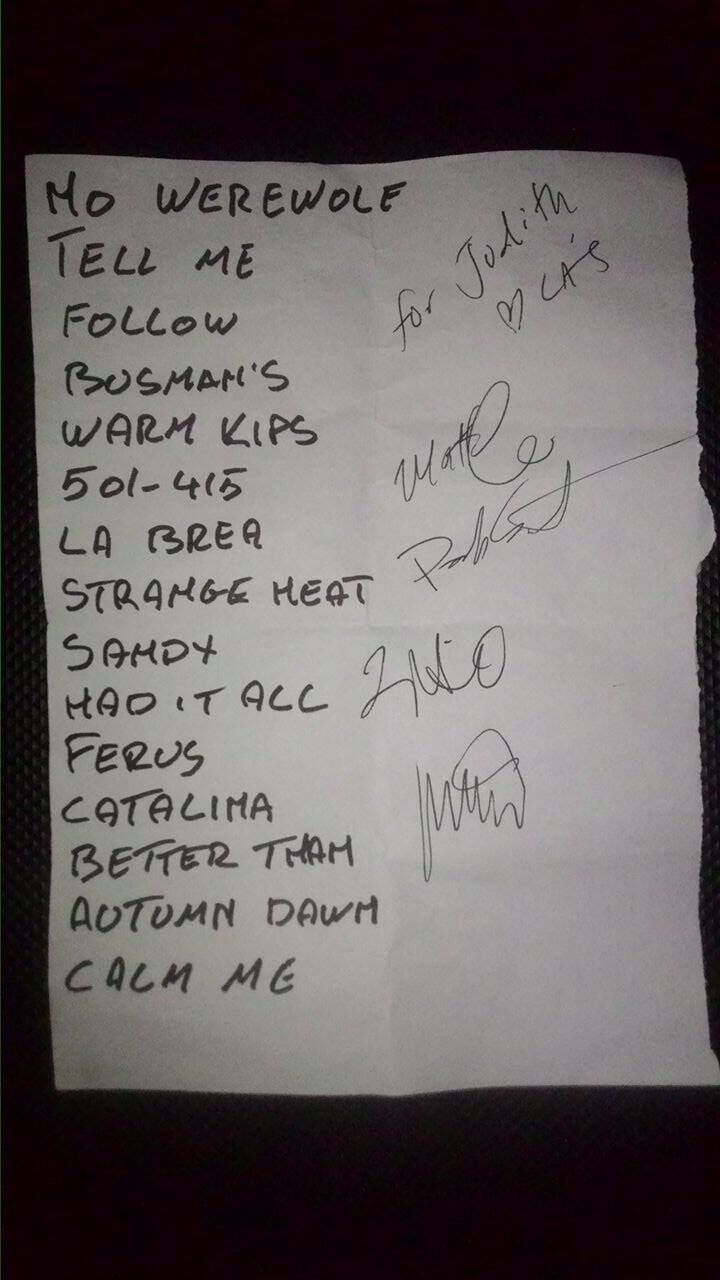 NO WEREWOLF
TELL ME
FOLLOW
BUSMAN'S
WARM KIPS
501-415
LA BREA
STRANGE HEAT
SANDY
HAD IT ALL
FERUS
CATALINA
BETTER THAN
AUTUMN DAWN
CALM ME
for Judith
♡ LA'S